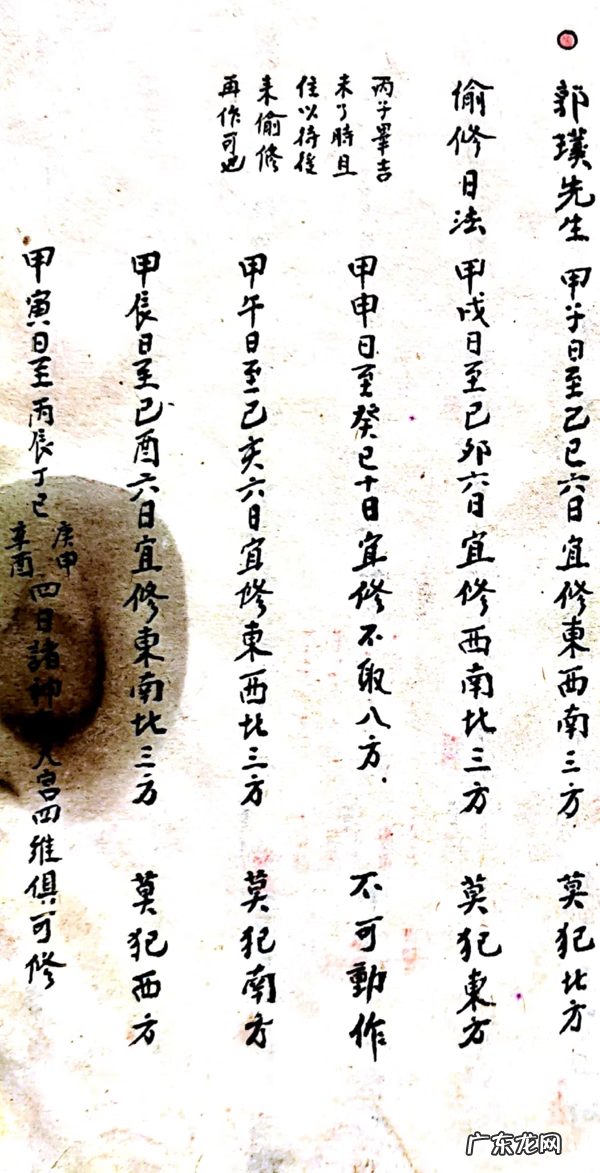 郭璞先生 甲子日至己巳六日宜修東西南三方 莫犯北方
偷修日法 甲戌日至己卯六日宜修西南北三方 莫犯東方
丙子單吉
未了時且
住以待後
来偷修
再作可也
甲申日至癸巳十日宜修不取八方 不可動作
甲午日至己亥六日宜修東西北三方 莫犯南方
甲辰日至己酉六日宜修東南北三方 莫犯西方
甲寅日至丙辰丁巳庚申辛酉四日諸神 天宮四維俱可修
广东龙网